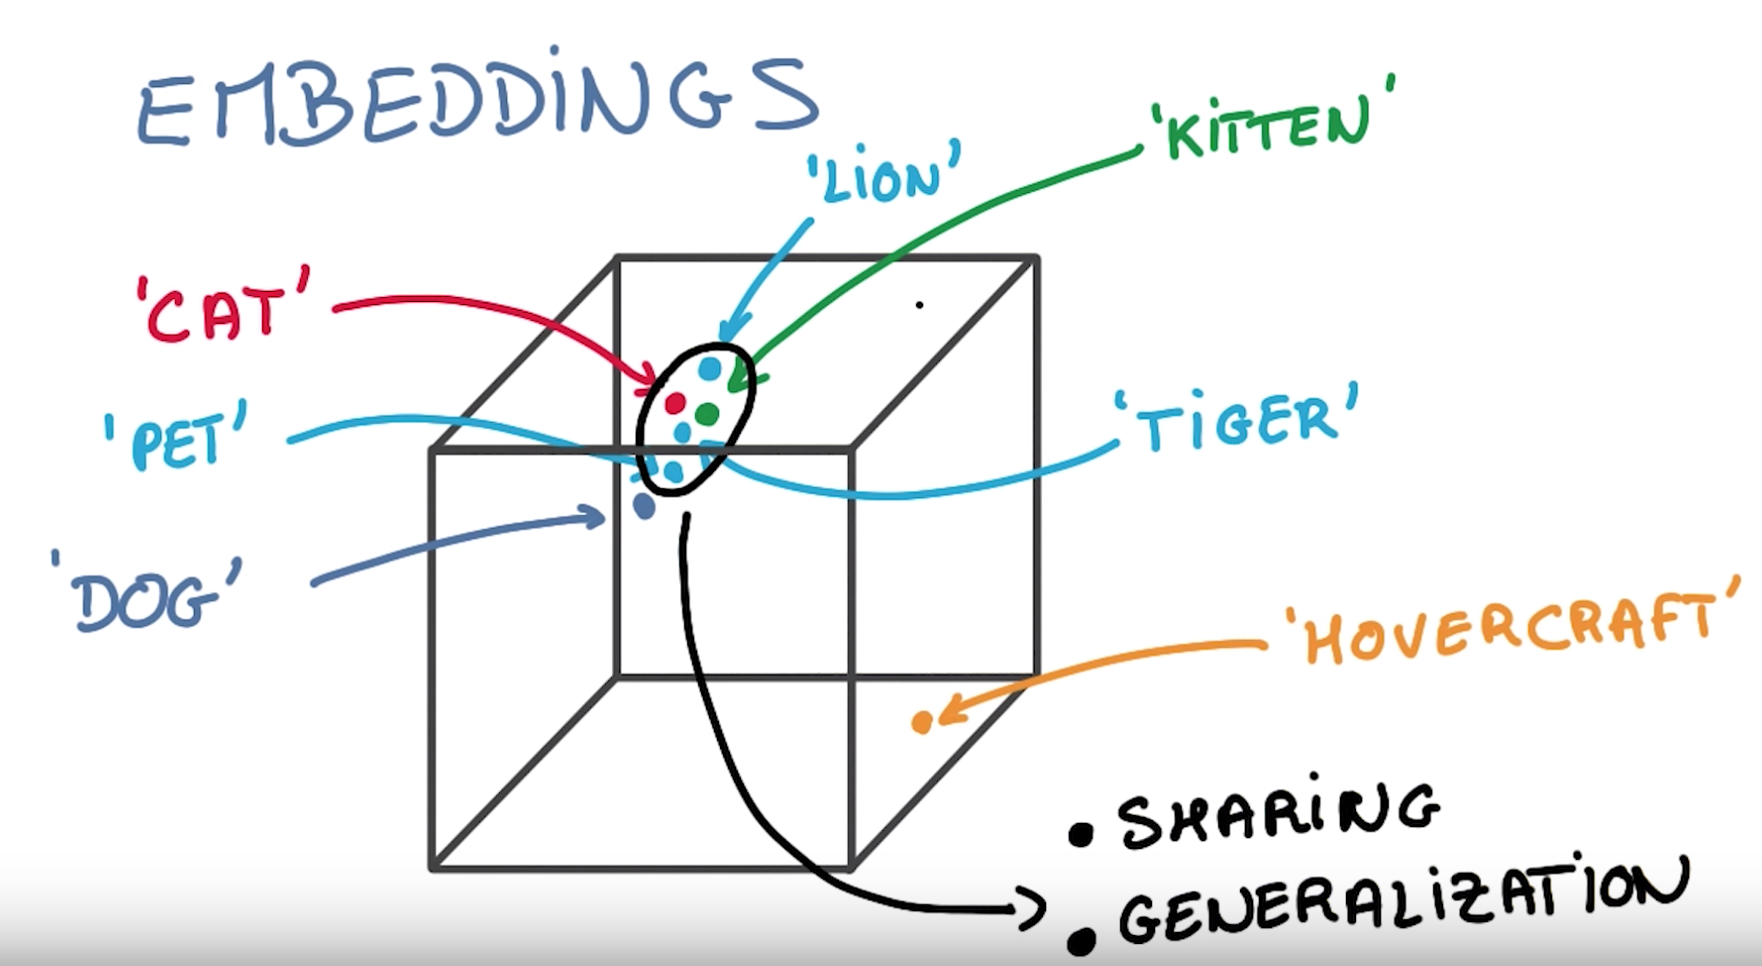 EMBEDDINGS
'LION'
'KITTEN'
'CAT'
'PET'
'TIGER'
'DOG'
'HOVERCRAFT'
• SHARING
• GENERALIZATION